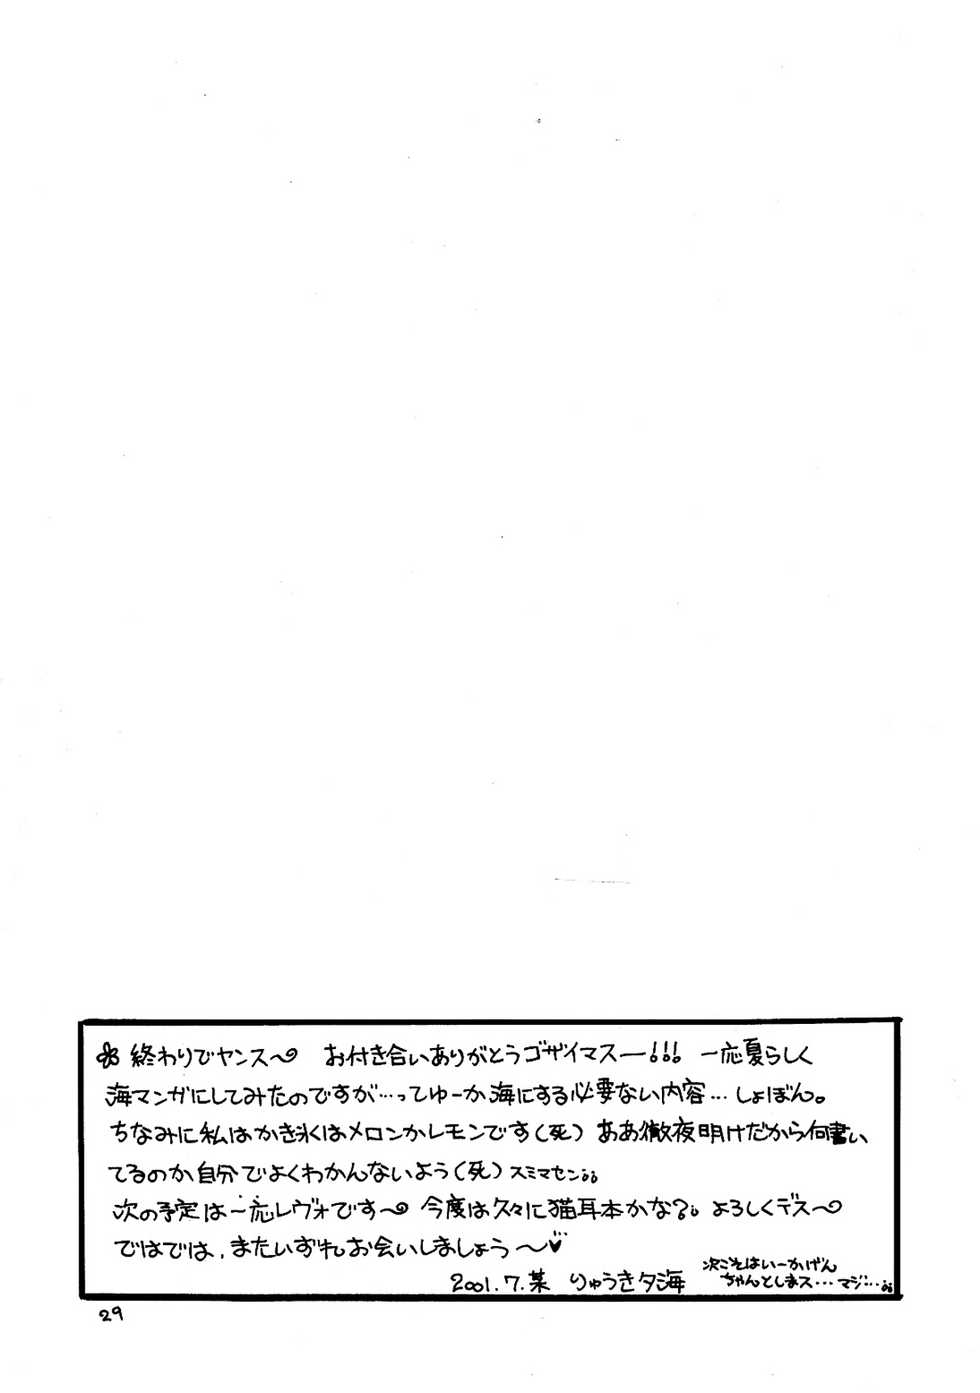 終わりでヤンス〜 お付き合いありがとうゴザイマスー!!! 一応夏らしく
海マンガにしてみたのですが…ってゆーか海にする必要ない内容…しょぼん。
ちなみに私はかき氷はメロンかレモンです(死) ああ徹夜明けだから何書い
てるのか自分でよくわかんないよう(死) スミマセン。。
次の予定は一応レヴォです〜 今度は久々に猫耳本かな?。よろしくデス〜
ではでは、またいずれお会いしましょう〜♥
2001.7.某 りゅうき夕海
次こそはいーかげん
ちゃんとしまス…マジ…。。
29